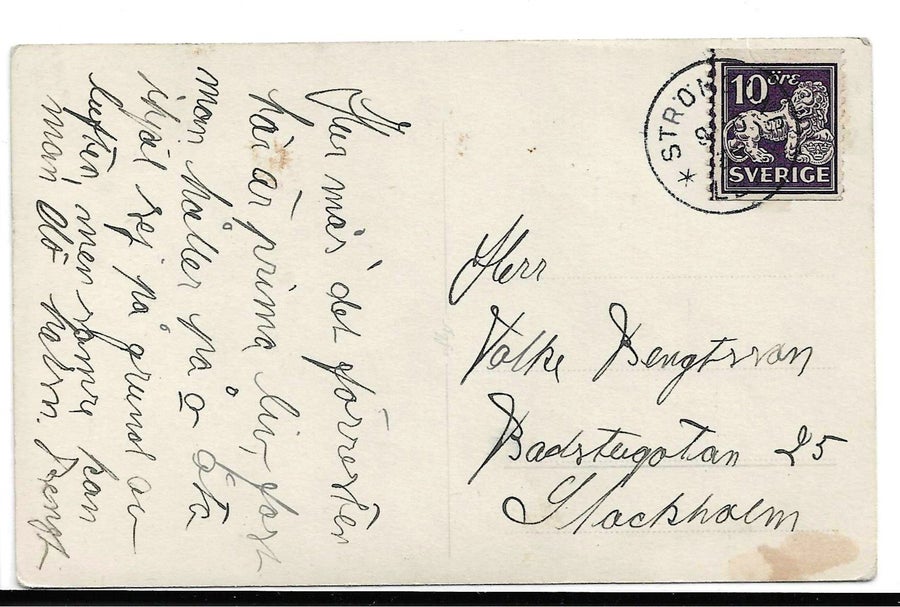 Hur mås det förresten
här är prima liv, fast
man håller på o äta
ihjäl sej på grund av
luften, men sämre kan
man dö hälsn. Bengt
10 öre
SVERIGE
STRÖM
Herr
Folke Bengtsson
Badstugatan 25
Stockholm